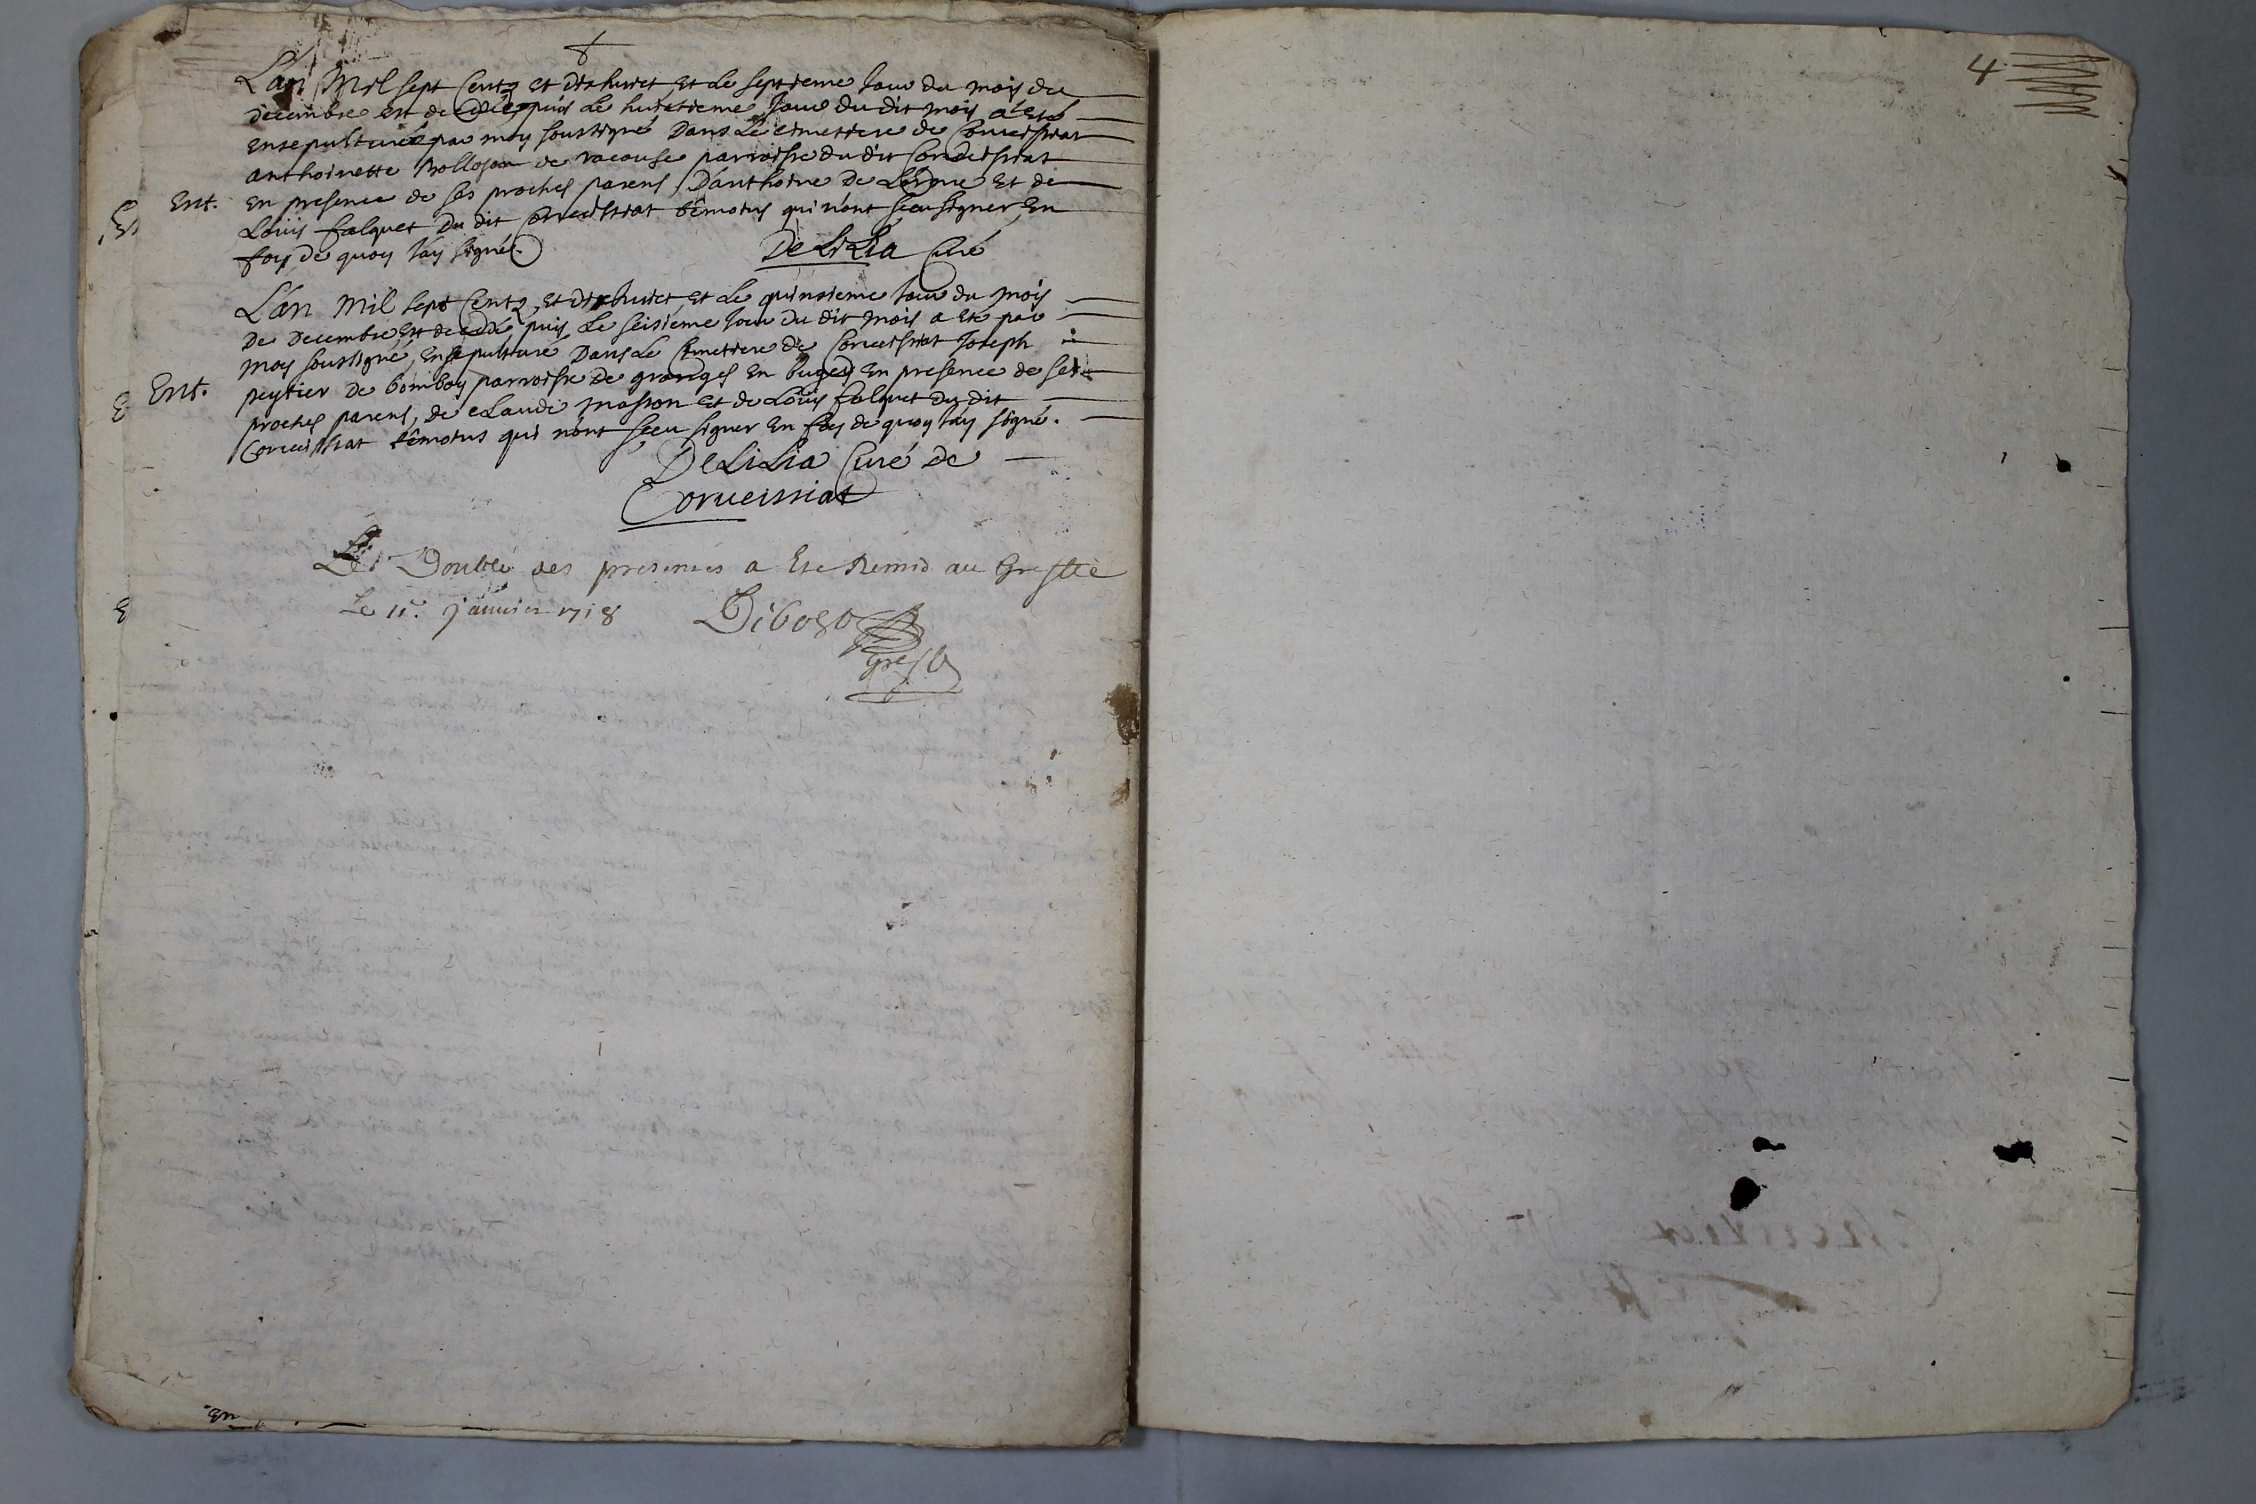 L'an Mil sept Centz et dixhuict et Le septieme Jour du mois de
decembre est decedée puis Le huictieme Jour du dit mois a eté
ensepulturée par moy soussigné dans Le cimetiere de Corveissiat
anthoinette Bollosson de racouse parroisse du dit Corveissiat
Ent. En presence de ses proches parens, D'anthoine De Lorme et de
Loüis falquet du dit Corveissiat têmoins qui n'ont sceu signer En
foy de quoy J'ay signé.
De LiLia Curé
L'an Mil sept Centz et dixhuict et Le quinsieme Jour du mois
De Decembre est decedé puis Le seisieme Jour du dit mois a eté par
moy soussigné, ensepulturé Dans Le Cimetiere de Corveissiat Joseph
Ent. peytier de bombois parroisse De granges En bugey En presence de ses
proches parens, de cLaude masson et de Loüis falquet du dit
Corveissiat têmoins qui n'ont sceu signer En foy de quoy J'ay signé.
DeLiLia Curé de
Corveissiat
Le Double des presentes a Esté Remis au Greffe
Le 11e. Janvier 1718
4